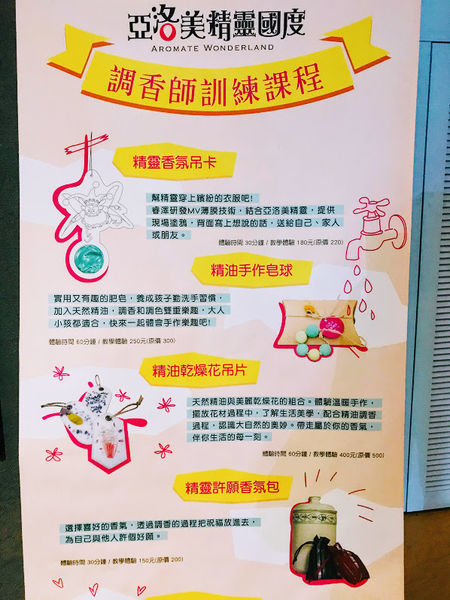 亞洛美精靈國度
AROMATE WONDERLAND
調香師訓練課程
精靈香氛吊卡
幫精靈穿上繽紛的衣服吧!
睿澤研發MV薄膜技術,結合亞洛美精靈,提供
現場塗鴉,背面寫上想說的話,送給自己、家人
或朋友。
體驗時間 30分鐘 / 教學體驗 180元(原價 220)
精油手作皂球
實用又有趣的肥皂,養成孩子勤洗手習慣,
加入天然精油,調香和調色雙重樂趣,大人
小孩都適合,快來一起體會手作樂趣吧!
體驗時間 60分鐘 / 教學體驗 250元(原價 300)
精油乾燥花吊片
天然精油與美麗乾燥花的組合。體驗溫暖手作,
擺放花材過程中,了解生活美學,配合精油調香
過程,認識大自然的奧妙。帶走屬於你的香氣,
伴你生活的每一刻。
體驗時間 60分鐘 / 教學體驗 400元(原價 500)
精靈許願香氛包
選擇喜好的香氣,透過調香的過程把祝福放進去,
為自己與他人許個好願。
體驗時間 30分鐘 / 教學體驗 150元(原價 200)